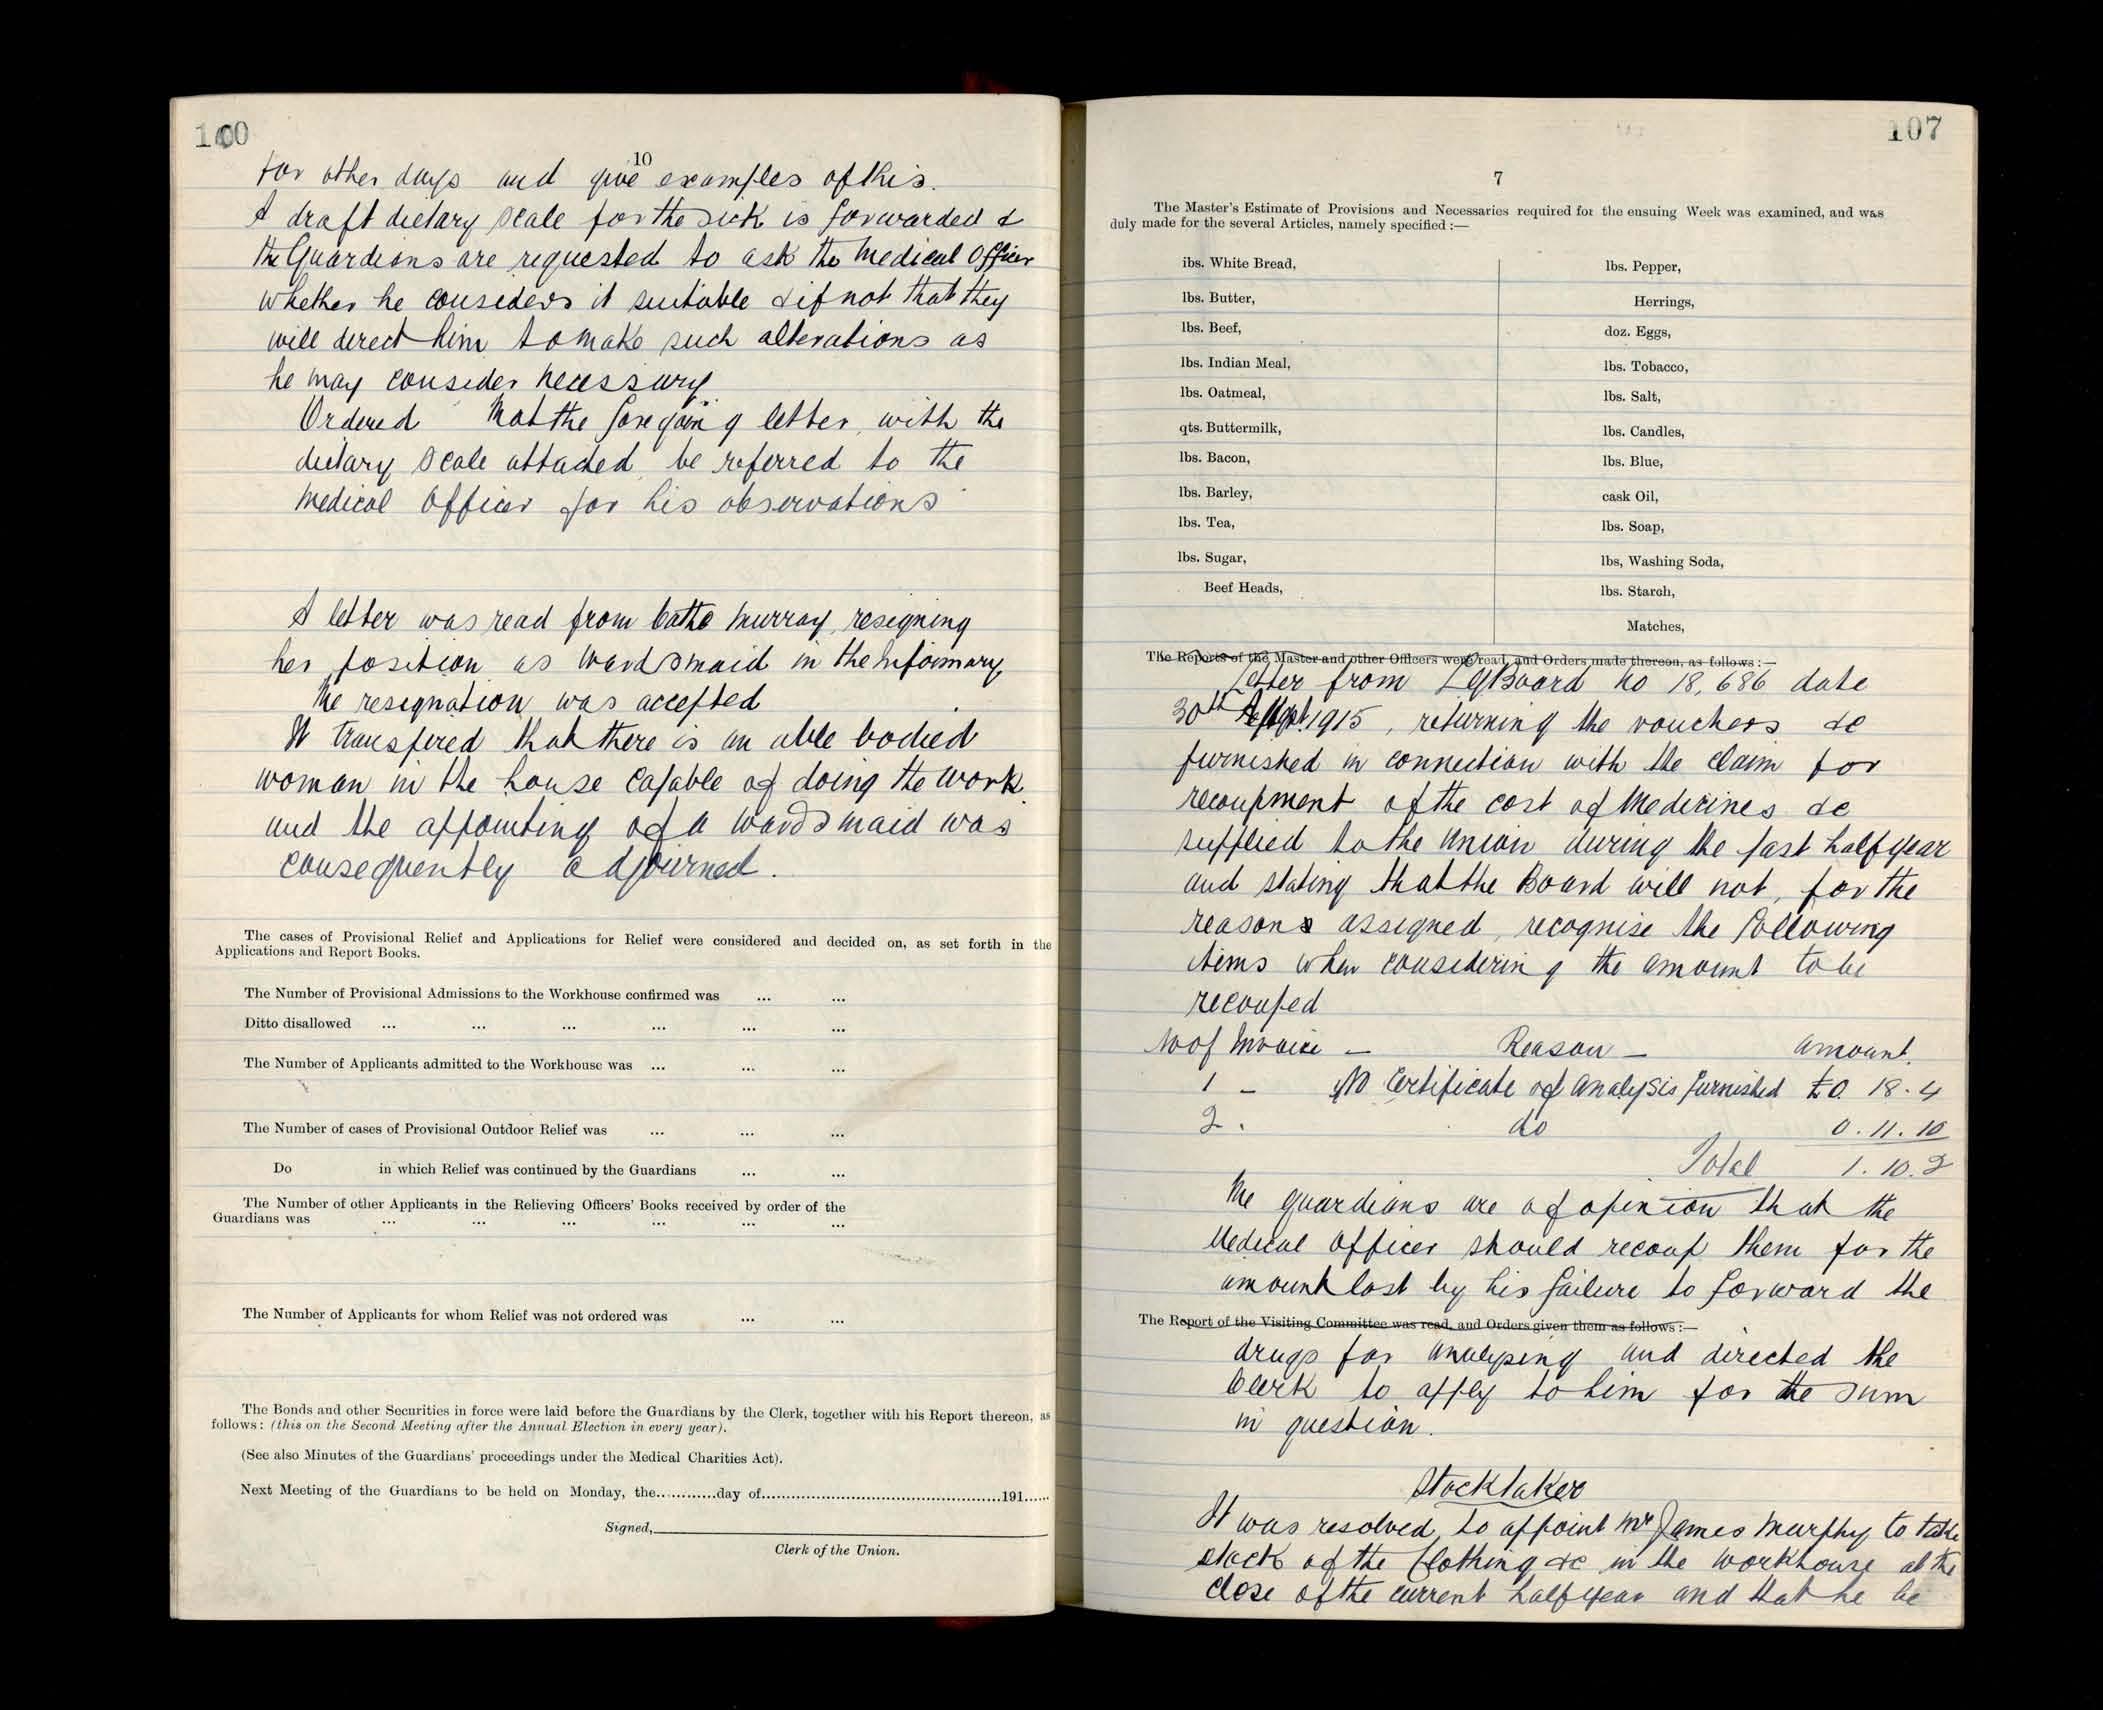 100
10
for other days and give examples of this.
A draft dietary scale for the sick is forwarded &
the Guardians are requested to ask the Medical Officer
whether he considers it suitable & if not that they
will direct him to make such alterations as
he may consider necessary.
Ordered That the foregoing letter, with the
dietary scale attached, be referred to the
Medical Officer for his observations
A letter was read from Cathe Murray, resigning
her position as wardsmaid in the Infirmary
The resignation was accepted
It transpired that there is an able bodied
woman in the house capable of doing the work
and the appointing of a wardsmaid was
consequently adjourned.
The cases of Provisional Relief and Applications for Relief were considered and decided on, as set forth in the
Applications and Report Books.
The Number of Provisional Admissions to the Workhouse confirmed was ... ...
Ditto disallowed ... ... ... ... ... ...
The Number of Applicants admitted to the Workhouse was ... ... ...
The Number of cases of Provisional Outdoor Relief was ... ... ...
Do in which Relief was continued by the Guardians ... ...
The Number of other Applicants in the Relieving Officers' Books received by order of the
Guardians was ... ... ... ... ... ...
The Number of Applicants for whom Relief was not ordered was ... ...
The Bonds and other Securities in force were laid before the Guardians by the Clerk, together with his Report thereon, as
follows: (this on the Second Meeting after the Annual Election in every year).
(See also Minutes of the Guardians' proceedings under the Medical Charities Act).
Next Meeting of the Guardians to be held on Monday, the............day of................................................191......
Signed,
Clerk of the Union.
107
7
The Master's Estimate of Provisions and Necessaries required for the ensuing Week was examined, and was
duly made for the several Articles, namely specified :—
lbs. White Bread,
lbs. Butter,
lbs. Beef,
lbs. Indian Meal,
lbs. Oatmeal,
qts. Buttermilk,
lbs. Bacon,
lbs. Barley,
lbs. Tea,
lbs. Sugar,
Beef Heads,
lbs. Pepper,
Herrings,
doz. Eggs,
lbs. Tobacco,
lbs. Salt,
lbs. Candles,
lbs. Blue,
cask Oil,
lbs. Soap,
lbs, Washing Soda,
lbs. Starch,
Matches,
The Reports of the Master and other Officers were read, and Orders made thereon, as follows :—
Letter from L G Board No 18,686 date
30th Sept. 1915, returning the vouchers &c
furnished in connection with the claim for
recoupment of the cost of Medicines &c
supplied to the Union during the past half year
and stating that the Board will not, for the
reasons assigned, recognise the following
items when considering the amount to be
recouped
No of Invoice — Reason — Amount.
1 — No Certificate of Analysis furnished £0. 18. 4
2 . do 0. 11. 10
Total 1. 10. 2
The guardians are of opinion that the
Medical Officer should recoup them for the
amount lost by his failure to forward the
The Report of the Visiting Committee was read, and Orders given them as follows :—
drugs for analysing and directed the
Clerk to apply to him for the sum
in question.
Stocktaker
It was resolved to appoint Mr James Murphy to take
stock of the Clothing &c in the workhouse at the
close of the current half year and that he be